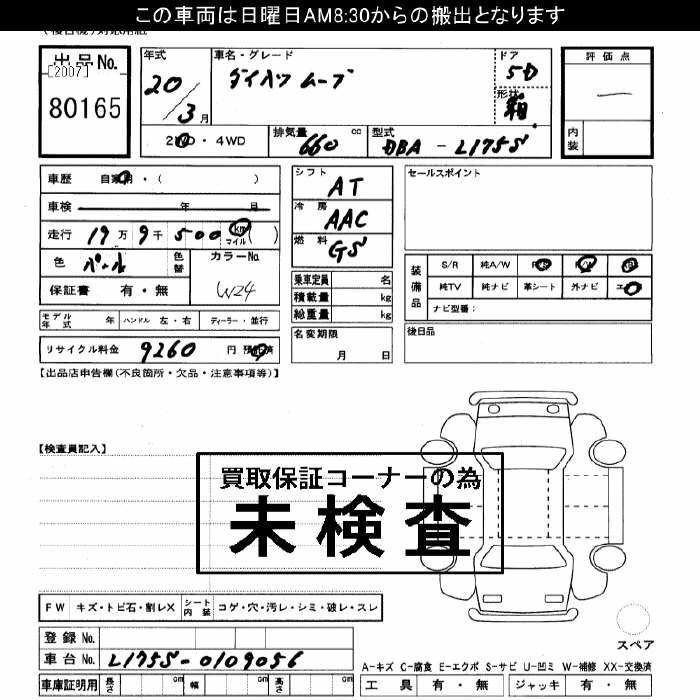 この車両は日曜日AM8:30からの搬出となります
出品No.
[2007]
80165
年式
20/3月
車名・グレード
ダイハツ ムーブ
ドア
5D
形状
箱
評価点
—
内装
2WD・4WD
排気量
660 cc
型式
DBA - L175S
車歴 自家用・( )
車検 年 月
走行 19万9千500 km マイル ( )
色 パール 色替 カラーNo. W24
保証書 有・無
モデル年式 年 ハンドル 左・右 ディーラー・並行
リサイクル料金 9260 円 預託済
シフト AT
冷房 AAC
燃料 GS
乗車定員 名
積載量 kg
総重量 kg
名変期限
月 日
セールスポイント
装備品
S/R 純A/W P/S P/W
純TV 純ナビ 革シート 外ナビ
ナビ型番:
後日品
【出品店申告欄(不良箇所・欠品・注意事項等)】
【検査員記入】
買取保証コーナーの為
未検査
FW キズ・トビ石・割レX シート内装 コゲ・穴・汚レ・シミ・破レ・スレ
登録No.
車台No. L175S-0109056
車庫証明用 長さ cm 幅 cm 高さ cm
スペア
A-キズ C-腐食 E-エクボ S-サビ U-凹ミ W-補修 XX-交換済
工具 有・無 ジャッキ 有・無